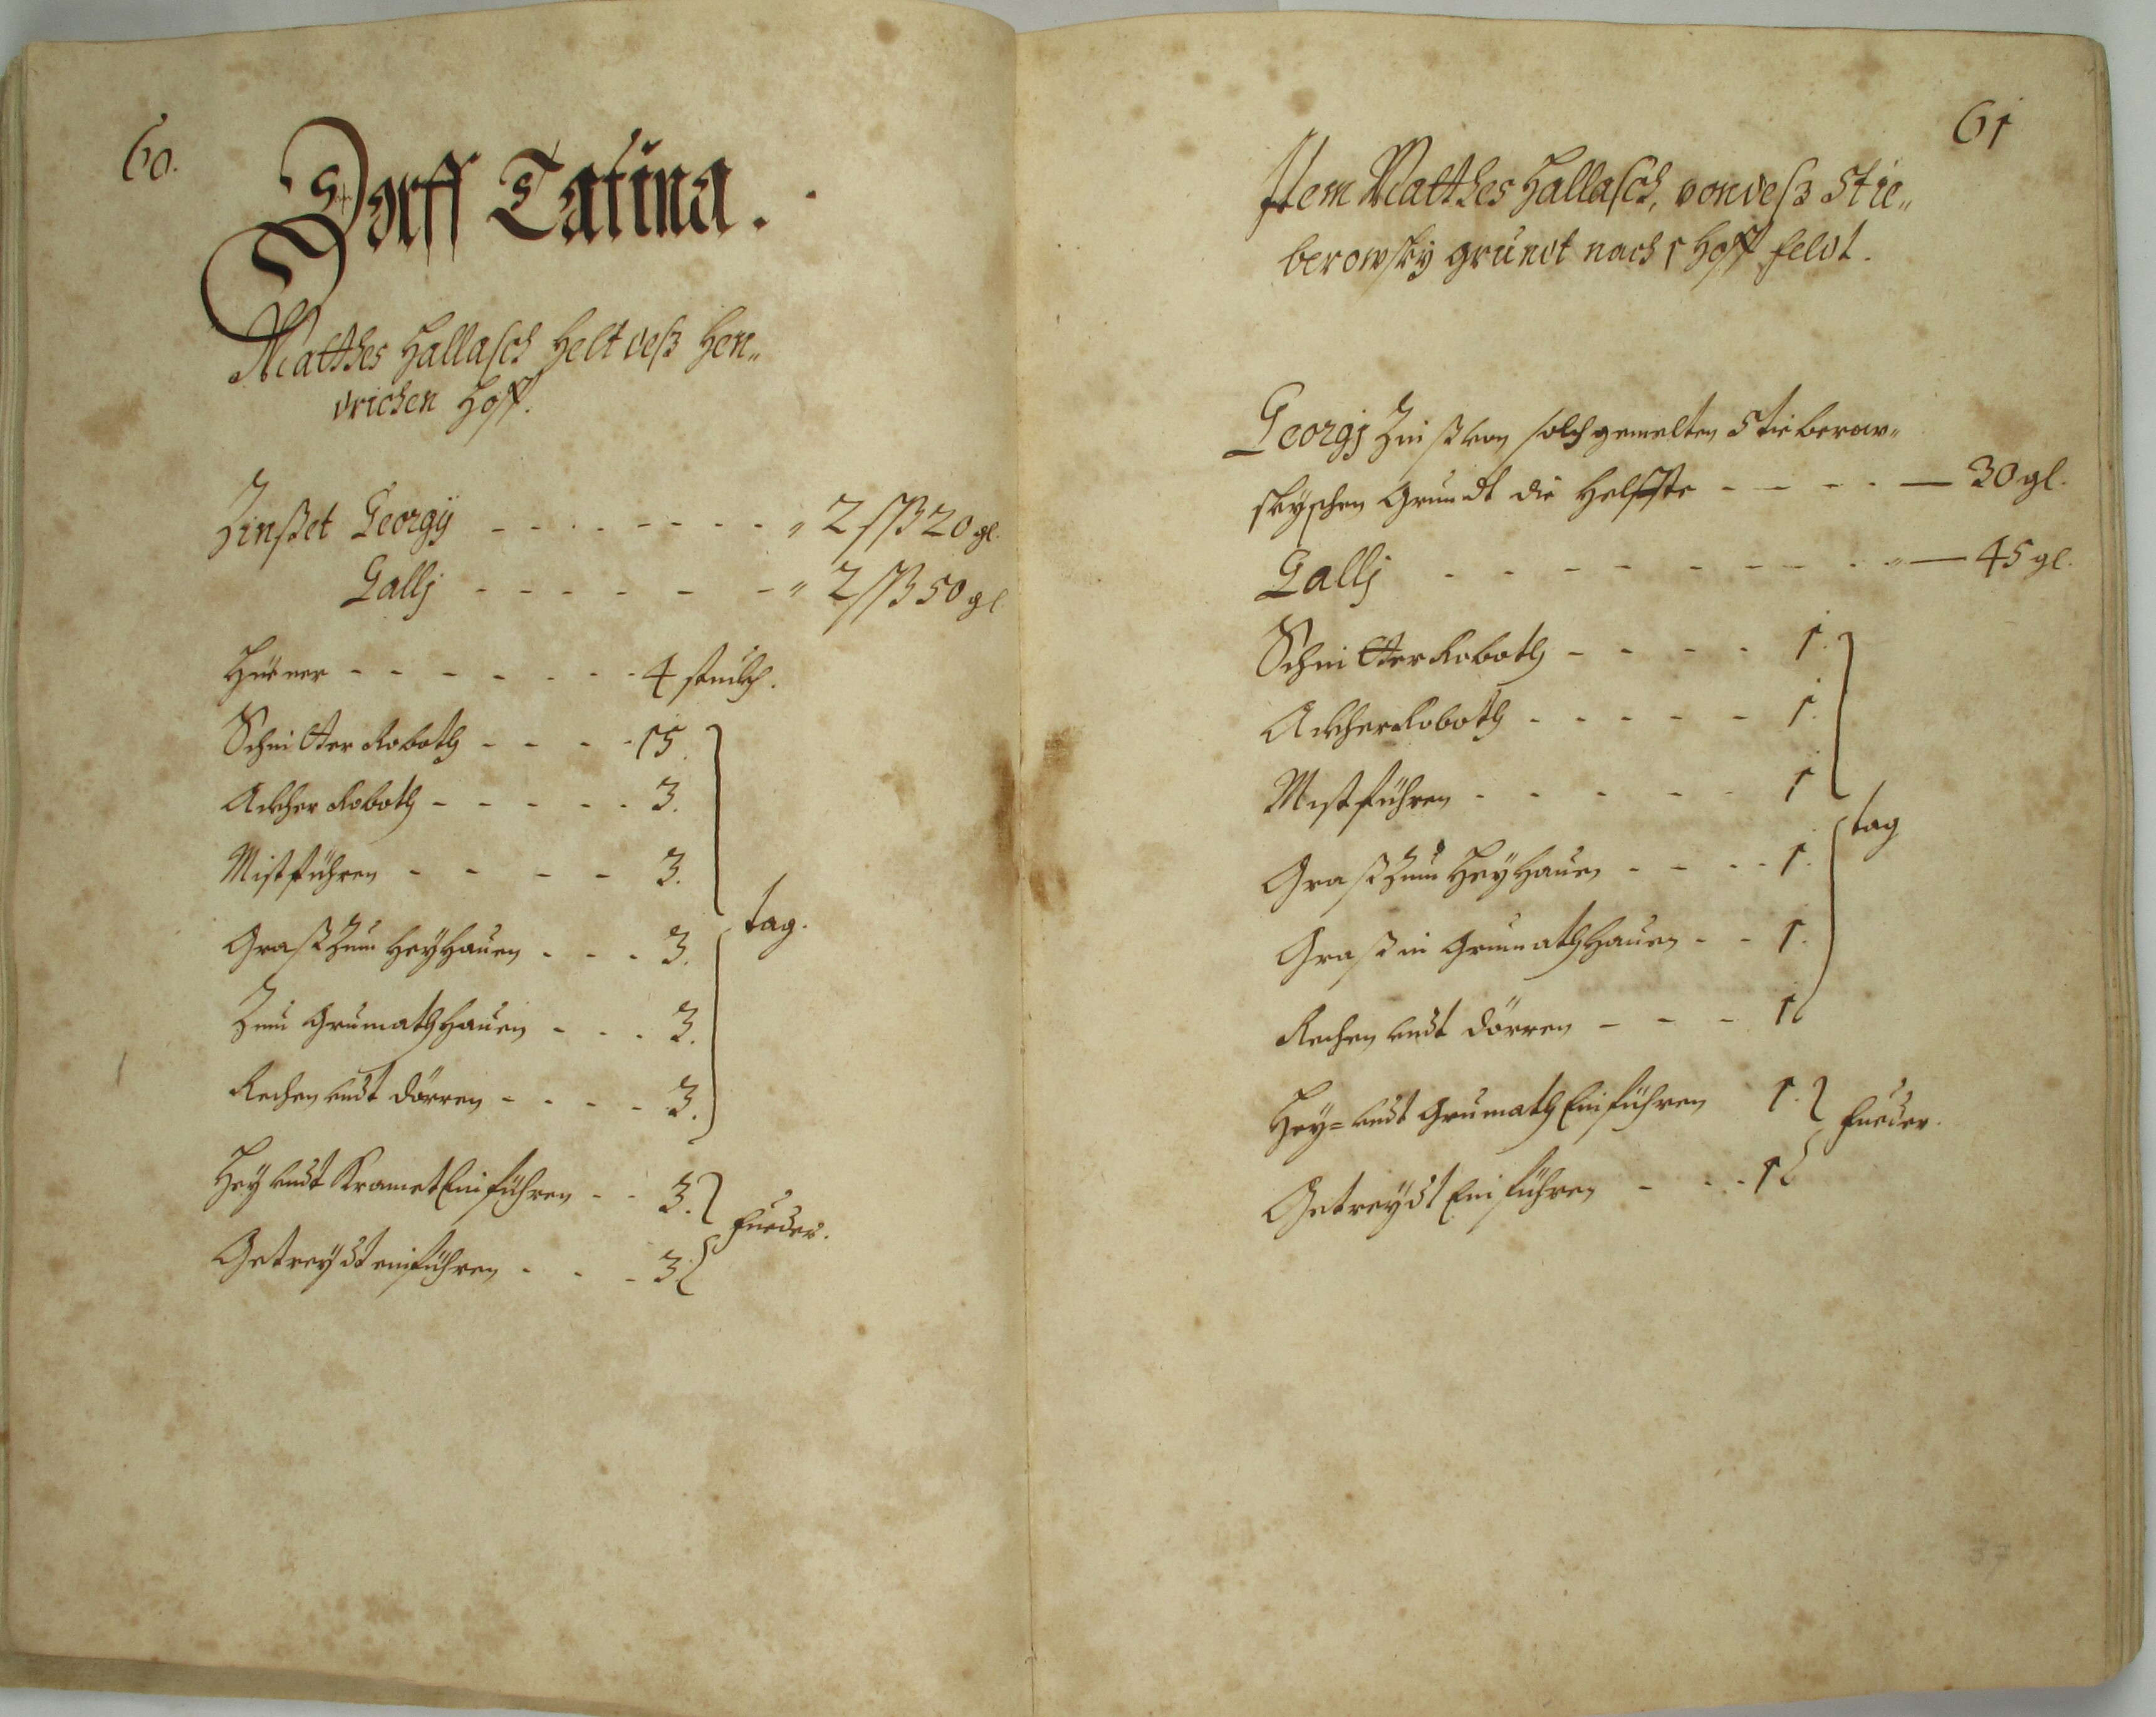 60.
Dorff Tatina.
Matthes Hallasch helt deß Hen„
drichen Hoff.
Zinßet Georgÿ - - - - - - - „ 2 ßß 20 gl.
Gallj - - - - - - „ 2 ßß 50 gl
Hüner - - - - - - - 4 stuckh.
Schnitter Roboth - - - - 15.
Ackher Roboth - - - - - 3.
Mistführen - - - - 3.
tag.
Graß Zum Heÿ Hauen - - - 3.
Zum Grumath Hauen - - - 3.
Rechen undt dörren - - - - 3.
Heÿ undt Kramet Einführen - - 3.
fueder.
Getreÿdt einführen - - - 3.
61
Item Matthes Hallasch, von deß Stie„
berowskÿ grundt nach 1 Hoff feldt.
Georgj Zinß von solch gemelten Stieberow„
skÿschen Grundt die Helffte - - - - — 30 gl.
Gallj - - - - - - - - - — 45 gl.
Schnitter Roboth - - - - 1.
Ackher Roboth - - - - - 1.
Mistführen - - - - - 1
tag
Graß Zum Heÿ Hauen - - - - 1.
Graß in Grumath Hauen - - 1.
Rechen undt dörren - - - 1
Heÿ= undt Grumath Einführen 1.
fueder.
Getreÿdt Einführen - - - 1
37